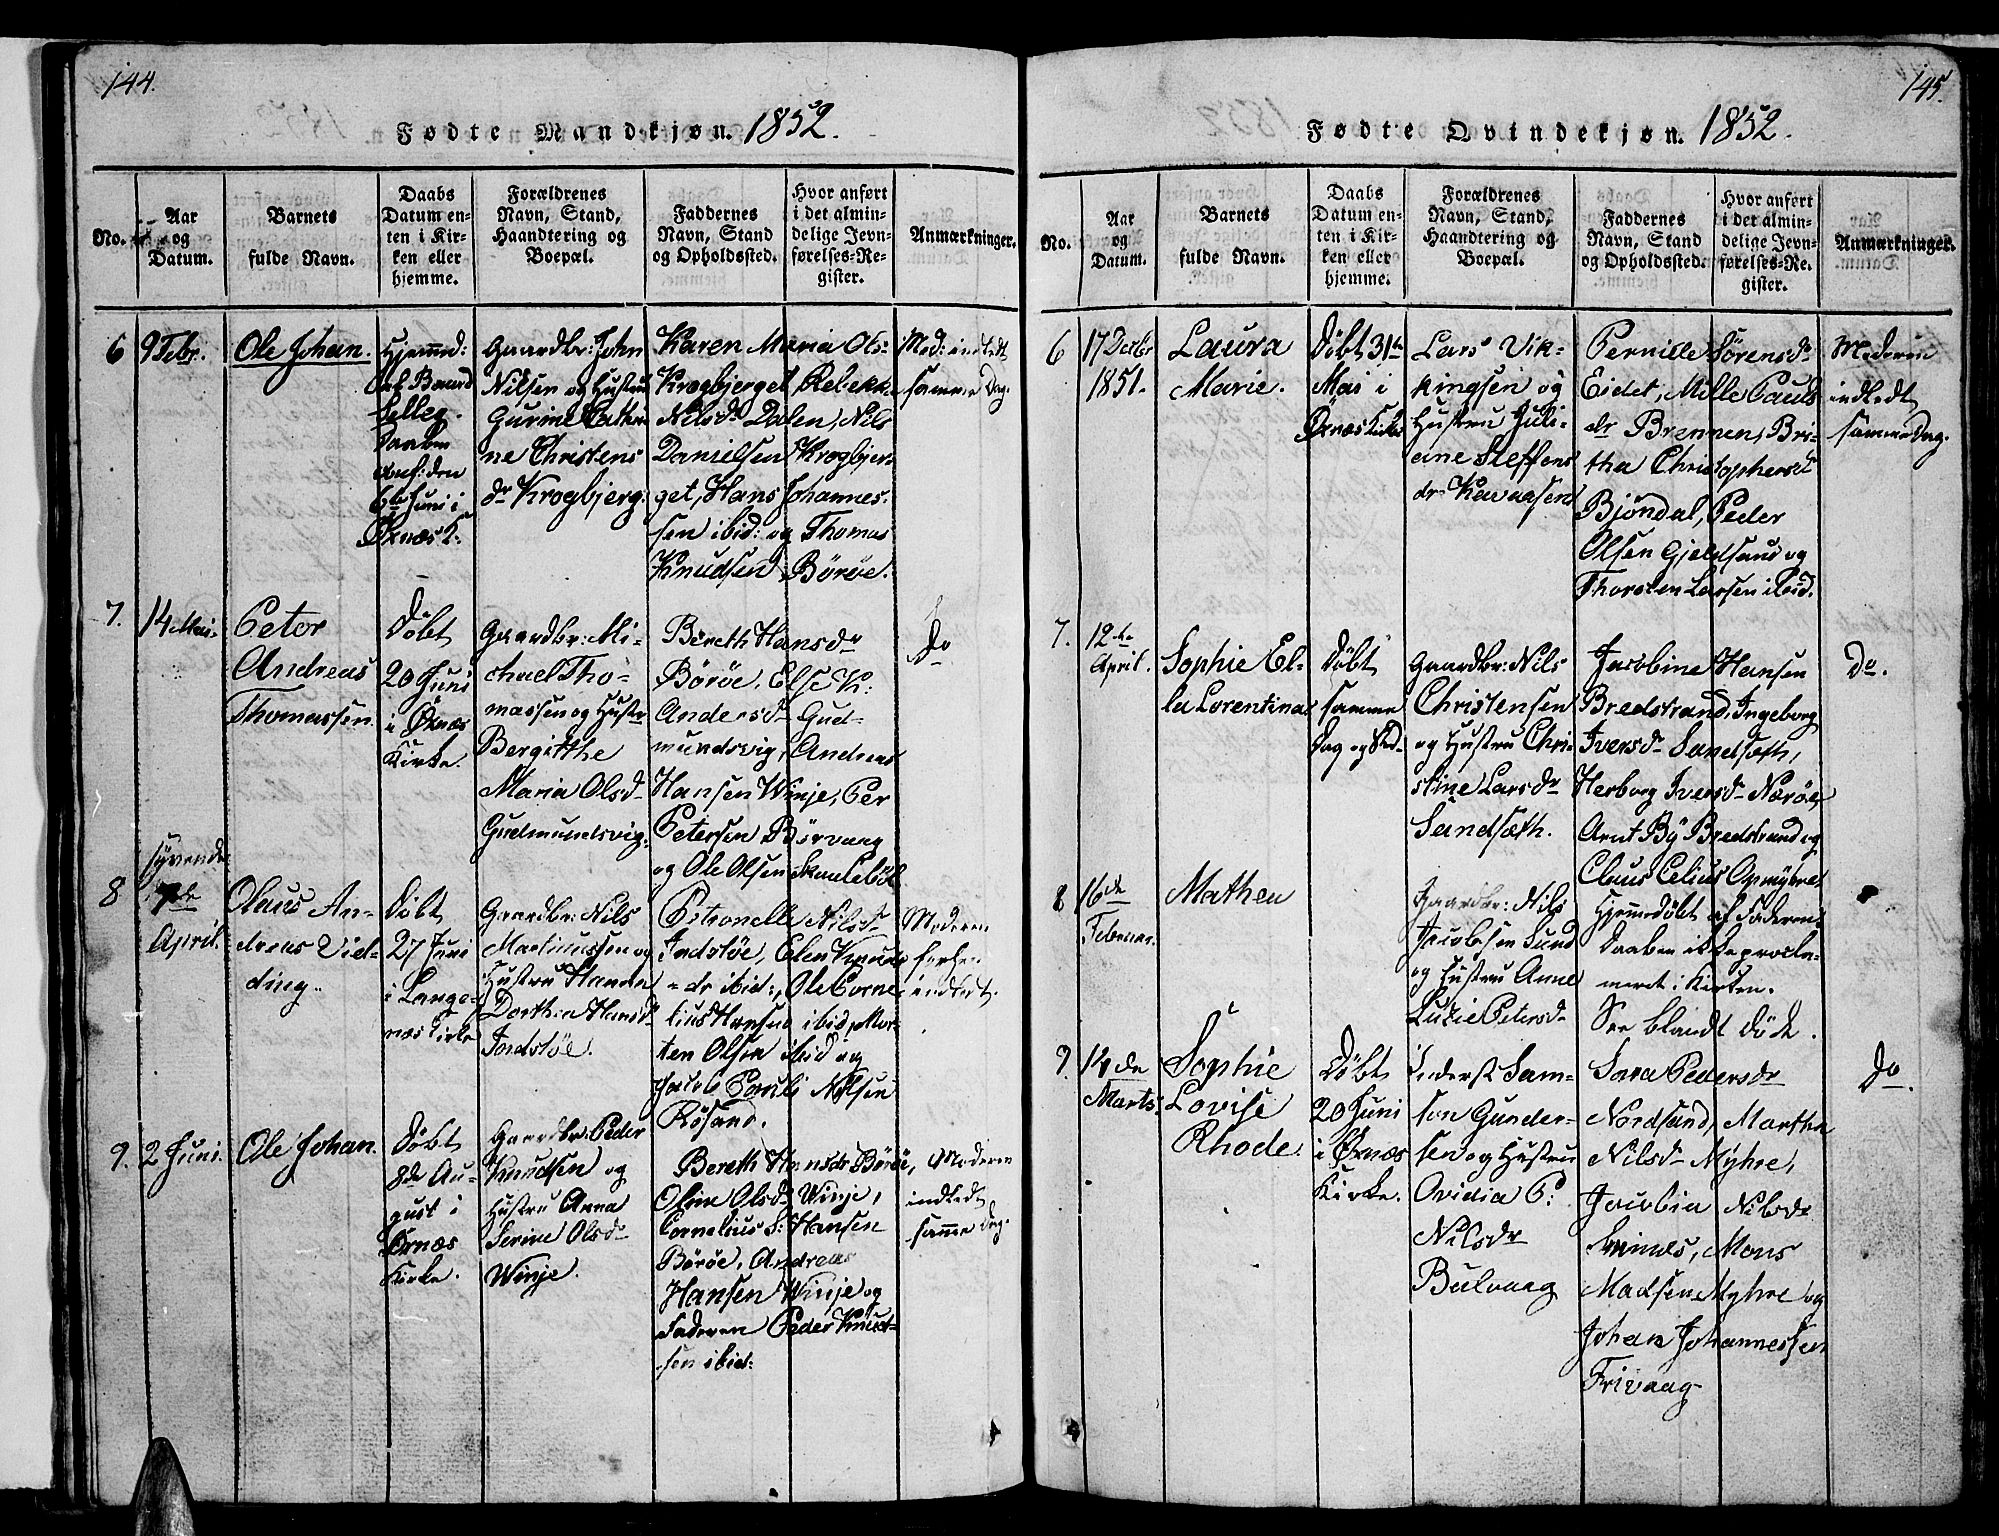 144.
Fødte Mandkjøn. 1852.
No.
Aar
og
Datum.
Barnets
fulde Navn.
Daabs
Datum en-
ten i Kir-
ken eller
hjemme.
Forældrenes
Navn, Stand,
Haandtering og
Boepæl.
Faddernes
Navn, Stand
og Opholdssted.
Hvor anført
i det almin-
delige Jevn-
førelses-Re-
gister.
Anmærkninger.
6
9 Febr.
Ole Johan.
Hjemmed:
Daaben
den
6te Juni i
Ørnæs K.
Gaardbr: John
Nilsen og Hustru
Gurine Cathri
ne Christens
dr Krogbjerg.
Karen Maria Ols-
Krogbjerget, Rebekka
Nilsdr Dalen, Nils
Danielsen Krogbjer-
get, Hans Johannes-
sen ibid: og Thomas
Knudsen Børøe.
Mod: indledt
samme Dag.
7.
14 Mai.
Peter
Andreas
Thomassen.
Døbt
20 Juni
i Ørnæs
Kirke.
Gaardbr: Mi-
chael Tho-
massen og Hustr
Bergitthe
Maria Olsd
Gudmundsvig.
Bereth Hansdr
Børøe, Else K:
Andersd Gud-
mundsvig, Andreas
Hansen Winje, Per
Petersen Børvaag
og Ole Olsen
Do
8
syvende
7de
April.
Olaus An-
dreas Vid-
ding.
Døbt
27 Juni
i Lange-
næs Kirke
Gaardbr: Nils
Martinussen og
Hustru Hanna
Dorthea Hansd
Indstøe.
Petronelle Nilsd
Indstøe, Elen Knuds
dr ibid:, Ole Corne
lius Hansen ibid, Mor-
ten Olsen ibid og
Jacob Pauli Nilsen
Røsand.
Moderen
forhen
indledt.
9.
2 Juni.
Ole Johan.
Døbt
8de Au-
gust i
Ørnæs
Kirke.
Gaardbr: Peder
Knudsen og
Hustru Anna
Serine Olsd
Winje.
Bereth Hansdr Børøe,
Oline Olsd Winje,
Cornelius S: Hansen
Børøe, Andreas
Hansen Winje og
Faderen Peder Knud-
sen ibid:
Moderen
indledt
samme Dag.
145.
Fødte Qvindekjøn. 1852.
No.
Aar
og
Datum.
Barnets
fulde Navn.
Daabs
Datum en-
ten i Kir-
ken eller
hjemme.
Forældrenes
Navn, Stand,
Haandtering og
Boepæl.
Faddernes
Navn, Stand
og Opholdssted.
Hvor anført
i det almin-
delige Jevn-
førelses-Re-
gister.
Anmærkninger.
6
17 Decbr
1851.
Laura
Marie.
Døbt 31te
Mai i
Ørnæs Kirke
Lars Vik-
kingsen og
Hustru Juli-
ane Steffens
dr
Pernille Sørensdr
Eidet, Mille Pauls
dr Brennen, Bri-
tha Christophersdr
Bjøndal, Peder
Olsen Gjeldsund og
Thorsten Larsen ibid.
Moderen
indledt
samme Dag.
7.
12te
April.
Sophie El-
la Lorentina
Døbt
samme
Dag og Sted.
Gaardbr: Nils
Christensen
og Hustru Chri
stine Larsdr
Sandsæth.
Jacobine Hansen
Bredstrand, Ingeborg
Iversdr Sandsæth,
Herborg Iversd Nærøe
Arnt By Bredstrand og
Claus Celius
Do.
8
16de
Februar.
Mathea
Gaardbr: Nils
Jacobsen Sund
og Hustru Anne
Lucie Petersd
Hjemmedøbt af Faderen,
Daaben ikke procla-
meret i Kirken.
See blandt døde.
9.
14de
Marts.
Sophie
Lovise
Rhode.
Døbt
20 Juni
i Ørnæs
Kirke.
Inderst Sam-
son Gunder-
sen og Hustru
Ovidia P:
Nilsdr
Bulvaag
Sara Pedersdr
Nordsund, Martha
Nilsd Myhre,
Jacobia Nilsdr
Mons
Madsen Myhre og
Johan Johannessen
Frivaag
Do.